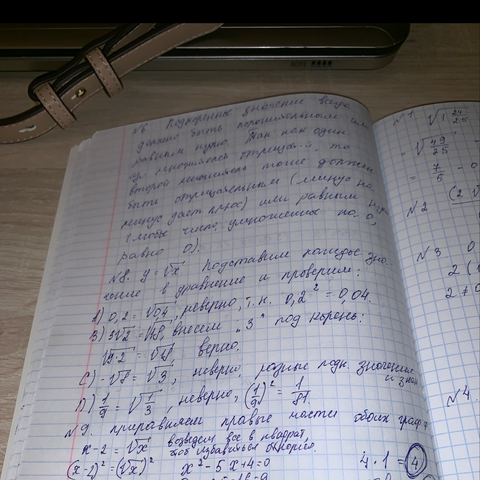 №6. Подкоренное значение всегда
должно быть положительным или
равным нулю. Так как один
множителей отрицат., то
второй множитель тоже должен
быть отрицательным (минус на
минус дает плюс) или равным нулю
(любое число, умноженное на 0,
равно 0).
№8. y = √x. Подставим каждое зна-
чение в уравнение и проверим:
A) 0,2 = √0,4, неверно, т.н. 0,2² = 0,04.
B) 3√2 = √18, внесем "3" под корень:
√9·2 = √18, верно.
C) -√8 = √3, неверно, разные подк. значения
и знак
D) 1/9 = √1/3, неверно, (1/9)² = 1/81.
№9 приравняем правые части обоих граф
x-2 = √x возведем все в квадрат,
чтоб избавиться от корня.
(x-2)² = (√x)² x² - 5x + 4 = 0
4·1 = 4
№1 √1 24/25
= √49/25
= 7/5
№2 (2√
№3 0
2(
2≠0
№4.